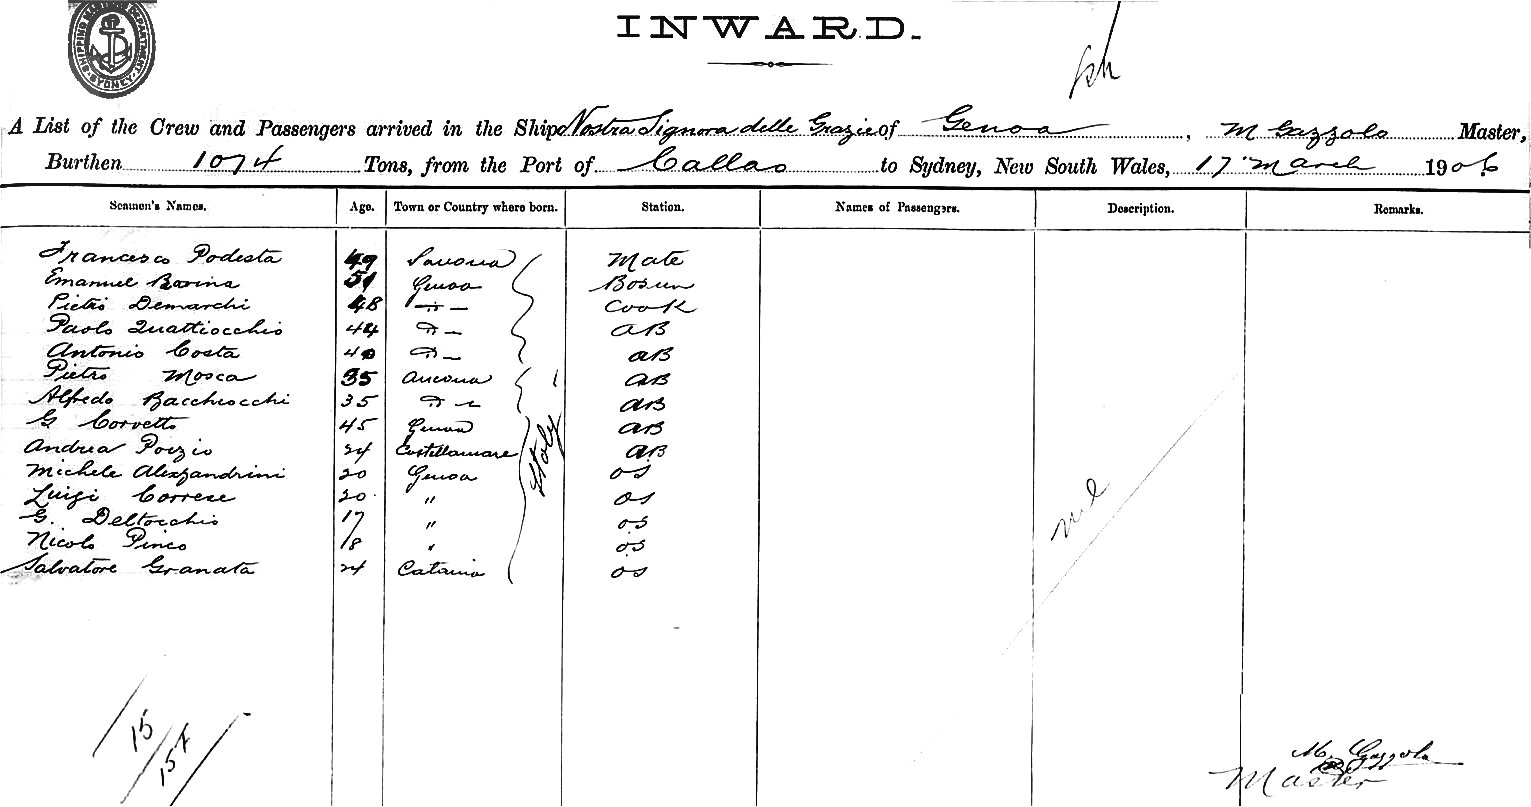 SHIPPING MASTERS DEPARTMENT SYDNEY
INWARD.
A List of the Crew and Passengers arrived in the Ship Nostra Signora delle Grazie of Genoa, M Gazzolo Master,
Burthen 1074 Tons, from the Port of Callao to Sydney, New South Wales, 17 March 1906
Seamen's Names. Age. Town or Country where born. Station. Names of Passengers. Description. Remarks.
Francesco Podesta 49 Savona Mate
Emanuel Bovina 51 Genoa Bosun
Pietro Demarchi 48 Do — Cook
Paolo Quattiocchio 44 Do — AB
Antonio Costa 40 Do — AB
Pietro Mosca 35 Ancona AB
Alfredo Bacchiocchi 35 Do — AB
G Corvetto 45 Genoa AB
Andrea Poizio 24 Castellamare AB
Italy
Michele Alezzandrini 20 Genoa OS
Luigi Correse 20 " OS
G. Deltocchio 17 " OS
nil
Nicolo Pinco 18 " OS
Salvatore Granata 24 Catania OS
15
157
M. Gazzolo
Master